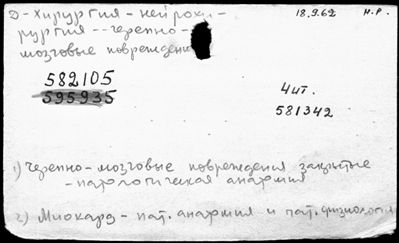 Д-Хирургия - нейрохи- 18.9.62 Н.Р.
рургия -- черепно-
мозговые поврежден
582105
595935
4 чит.
581342
1) Черепно-мозговые повреждения закрытые
- патологическая анатомия
2) Миокард - пат. анатомия и пат. физиология